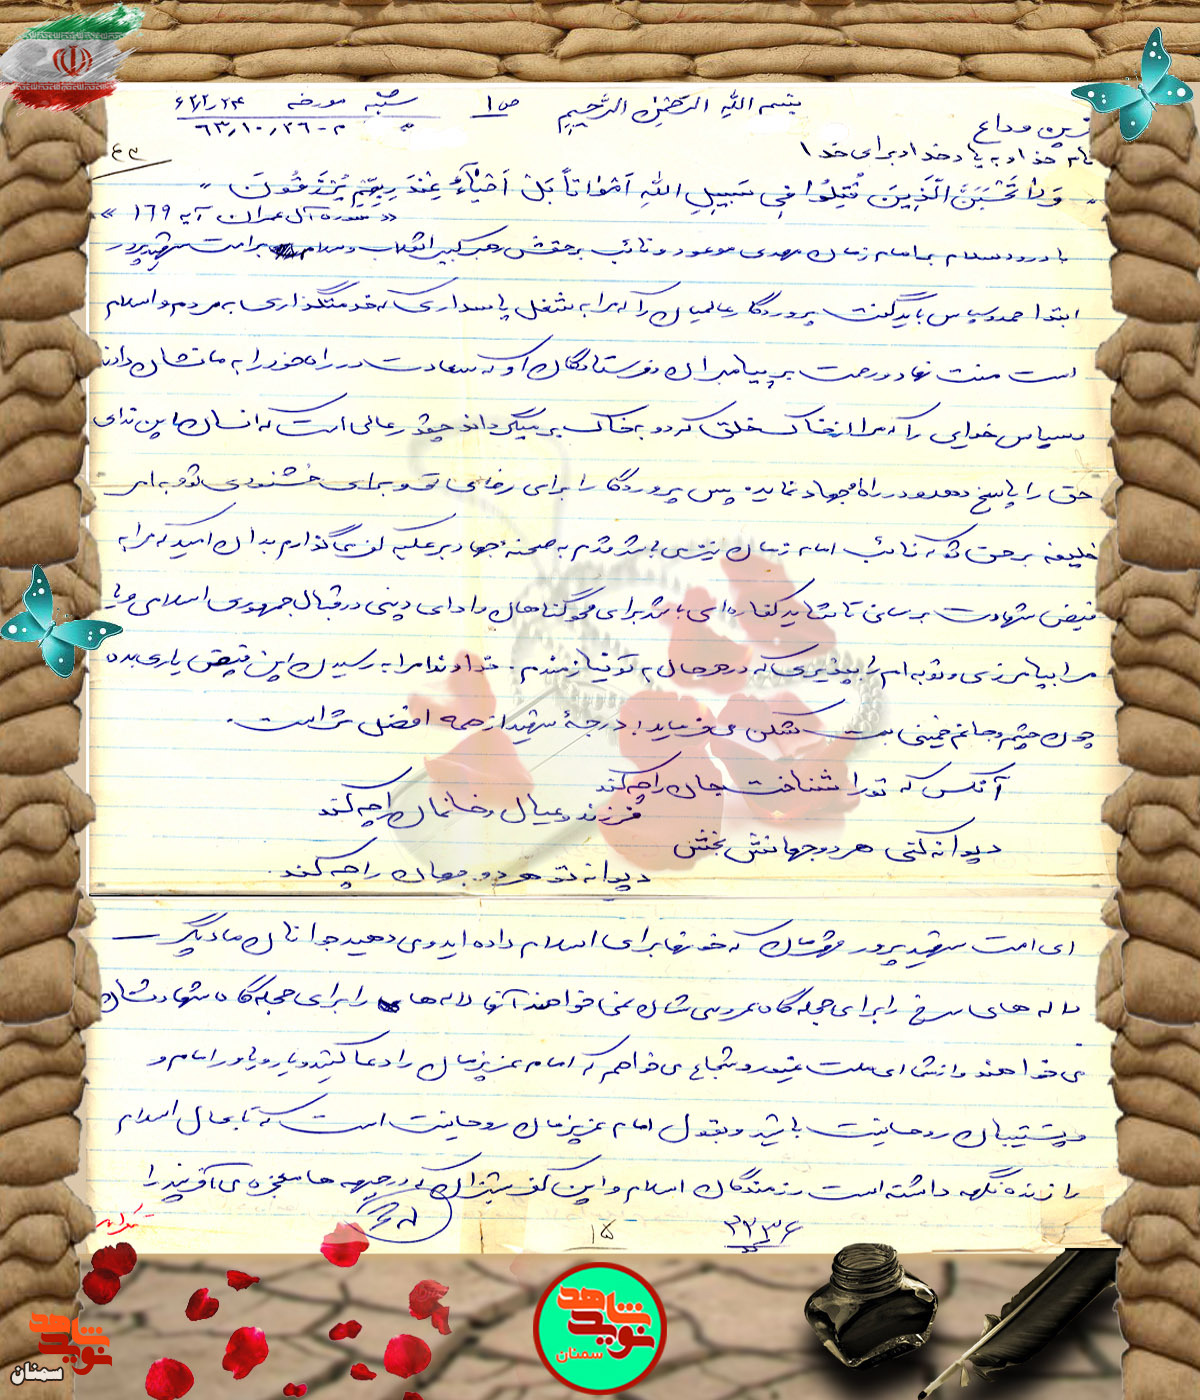 بسم الله الرحمن الرحیم
ص ۱
شنبه مورخه ۶۲/۲/۲۴
۶۳/۱۰/۲۶
آخرین وداع
بنام خدا و به یاد خدا و برای خدا
وَلا تَحْسَبَنَّ الَّذِینَ قُتِلُوا فِی سَبِیلِ اللهِ اَمْوَاتاً بَلْ اَحْیَاءٌ عِنْدَ رَبِّهِمْ یُرْزَقُونَ
« سوره آل عمران آیه ۱۶۹ »
با درود و سلام به امام زمان مهدی موعود و نائب بر حقش رهبر کبیر انقلاب و سلام بر امت شهید پرور
ابتدا حمد و سپاس باید گفت پروردگار عالمیان را که مرا به شغل پاسداری که خدمتگذاری به مردم و اسلام
است منت نهاد و رحمت بر پیامبران و فرستادگان او که سعادت در راه خود را به ما نشان دادند
و سپاس خدایی را که مرا از خاک خلق کرد و به خاک بر میگرداند چقدر عالی است که انسان این ندای
حق را پاسخ دهد و در راه او جهاد نماید. پس پروردگارا برای رضای تو و برای خشنودی تو و به امر
خلیفه بر حق تو که نائب امام زمان نیز می باشد قدم به صحنه جهاد بر علیه کفر می گذارم بدان امید که مرا به
فیض شهادت برسانی تا شاید کفاره ای باشد برای محو گناهان و ادای دینی در قبال جمهوری اسلامی
مرا بیامرزی و توبه ام را بپذیری که در هر حال به تو نیازمندم. خداوندا مرا به رسیدن این فیض یاری بده
چون چشم و جانم خمینی بت شکن می فرماید: درجهٔ شهید از همه افضل تر است.
آنکس که تو را شناخت جان را چه کند
فرزند و عیال و خانمان را چه کند
دیوانه کنی هر دو جهانش بخشی
دیوانه تو هر دو جهان را چه کند.
ای امت شهید پرور قهرمان که خونها برای اسلام داده اید و می دهید جوانان ما دیگر
لاله های سرخ را برای حجله گاه عروسی شان نمی خواهند آنها لاله ها را برای حجله گاه شهادتشان
می خواهند و از شما ای ملت غیور و شجاع می خواهم که امام عزیزمان را دعا کنید و یار و یاور امام و
و پشتیبان روحانیت باشید و بقول امام عزیزمان روحانیت است که تا بحال اسلام
را زنده نگهه داشته است رزمندگان اسلام و این کفر ستیزان که در جبهه ها معجزه می آفرینند را
۳۳۳۶
۱۵
شاهد
نوید
سمنان
شاهد
نوید
سمنان